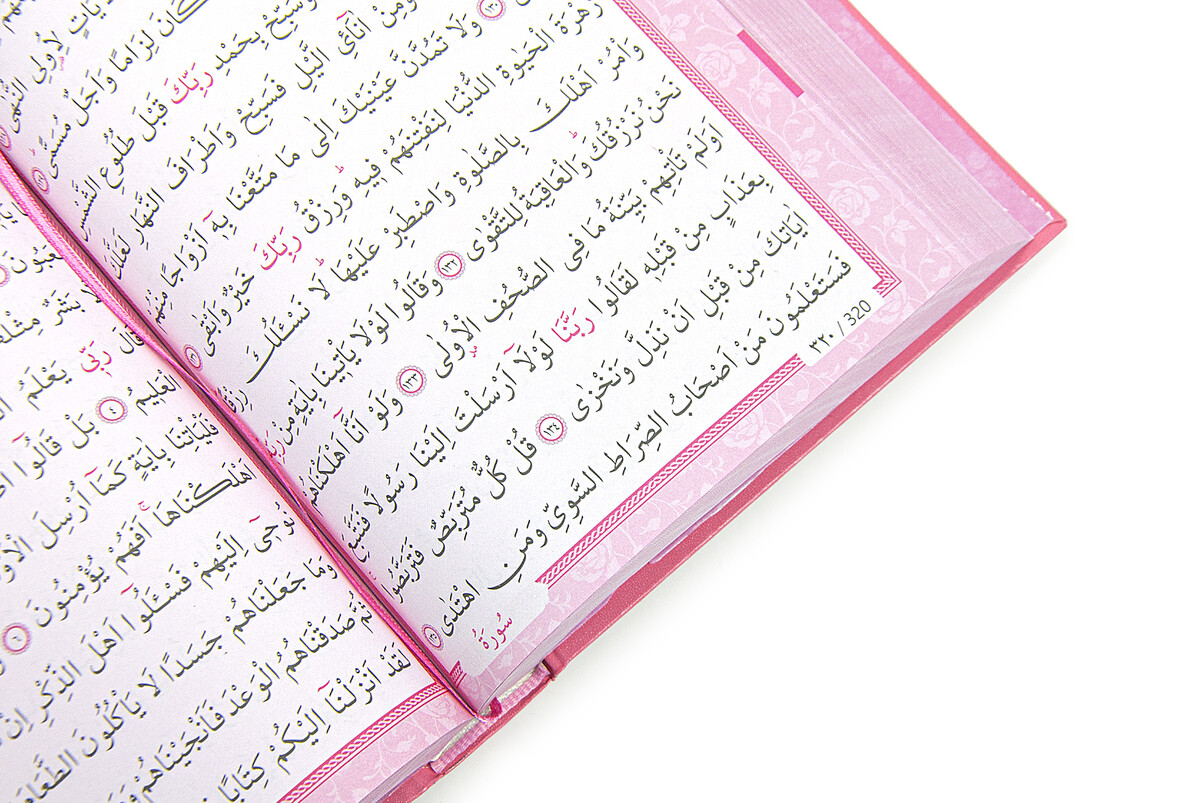 يَاتٍ لِاُولِى النُّهٰى
كَانَ لِزَامًا وَاَجَلٌ مُسَمًّى
وَسَبِّحْ بِحَمْدِ رَبِّكَ قَبْلَ طُلُوعِ الشَّمْسِ
وَمِنْ اٰنَآئِ الَّيْلِ فَسَبِّحْ وَاَطْرَافَ النَّهَارِ لَعَلَّكَ
١٣٠ وَلَا تَمُدَّنَّ عَيْنَيْكَ اِلٰى مَا مَتَّعْنَا بِهٖٓ اَزْوَاجًا مِنْهُمْ
زَهْرَةَ الْحَيٰوةِ الدُّنْيَا لِنَفْتِنَهُمْ فِيهِ وَرِزْقُ رَبِّكَ خَيْرٌ وَاَبْقٰى ١٣١
وَأْمُرْ اَهْلَكَ بِالصَّلٰوةِ وَاصْطَبِرْ عَلَيْهَا لَا نَسْـَٔلُكَ رِزْقًا
نَحْنُ نَرْزُقُكَ وَالْعَاقِبَةُ لِلتَّقْوٰى ١٣٢ وَقَالُوا لَوْلَا يَأْتِينَا بِاٰيَةٍ مِنْ رَبِّهِ
اَوَلَمْ تَأْتِهِمْ بَيِّنَةُ مَا فِى الصُّحُفِ الْاُولٰى ١٣٣ وَلَوْ اَنَّٓا اَهْلَكْنَاهُمْ
بِعَذَابٍ مِنْ قَبْلِهِ لَقَالُوا رَبَّنَا لَوْلَٓا اَرْسَلْتَ اِلَيْنَا رَسُولًا فَنَتَّبِعَ
اٰيَاتِكَ مِنْ قَبْلِ اَنْ نَذِلَّ وَنَخْزٰى ١٣٤ قُلْ كُلٌّ مُتَرَبِّصٌ فَتَرَبَّصُوا
فَسَتَعْلَمُونَ مَنْ اَصْحَابُ الصِّرَاطِ السَّوِىِّ وَمَنِ اهْتَدٰى ١٣٥
سُورَةُ
٣٢٠ / 320
قَالَ رَبِّى يَعْلَمُ
الْعَلِيمُ ٤ بَلْ قَالُوا
فَلْيَأْتِنَا بِاٰيَةٍ كَمَٓا اُرْسِلَ
اَهْلَكْنَاهَا اَفَهُمْ يُؤْمِنُونَ ٦
نُوحِٓى اِلَيْهِمْ فَسْـَٔلُٓوا اَهْلَ الذِّكْرِ اِنْ
وَمَا جَعَلْنَاهُمْ جَسَدًا لَا يَأْكُلُونَ الطَّعَامَ
ثُمَّ صَدَقْنَاهُمُ الْوَعْدَ فَاَنْجَيْنَاهُمْ
لَقَدْ اَنْزَلْنَٓا اِلَيْكُمْ كِتَابًا